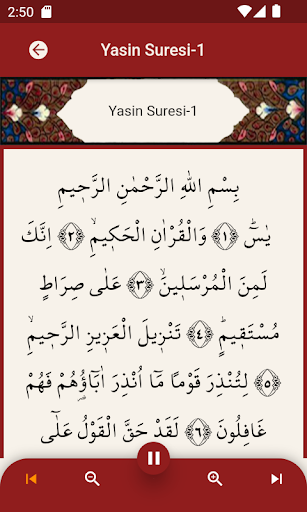 2:50
Yasin Suresi-1
Yasin Suresi-1
بِسْمِ اللهِ الرَّحْمٰنِ الرَّح۪يمِ
يٰسٓۜ ﴿١﴾ وَالْقُرْاٰنِ الْحَك۪يمِۙ ﴿٢﴾ اِنَّكَ
لَمِنَ الْمُرْسَل۪ينَۙ ﴿٣﴾ عَلٰى صِرَاطٍ
مُسْتَق۪يمٍۜ ﴿٤﴾ تَنْز۪يلَ الْعَز۪يزِ الرَّح۪يمِۙ
﴿٥﴾ لِتُنْذِرَ قَوْمًا مَٓا اُنْذِرَ اٰبَٓاؤُ۬هُمْ فَهُمْ
غَافِلُونَ ﴿٦﴾ لَقَدْ حَقَّ الْقَوْلُ عَلٰٓى